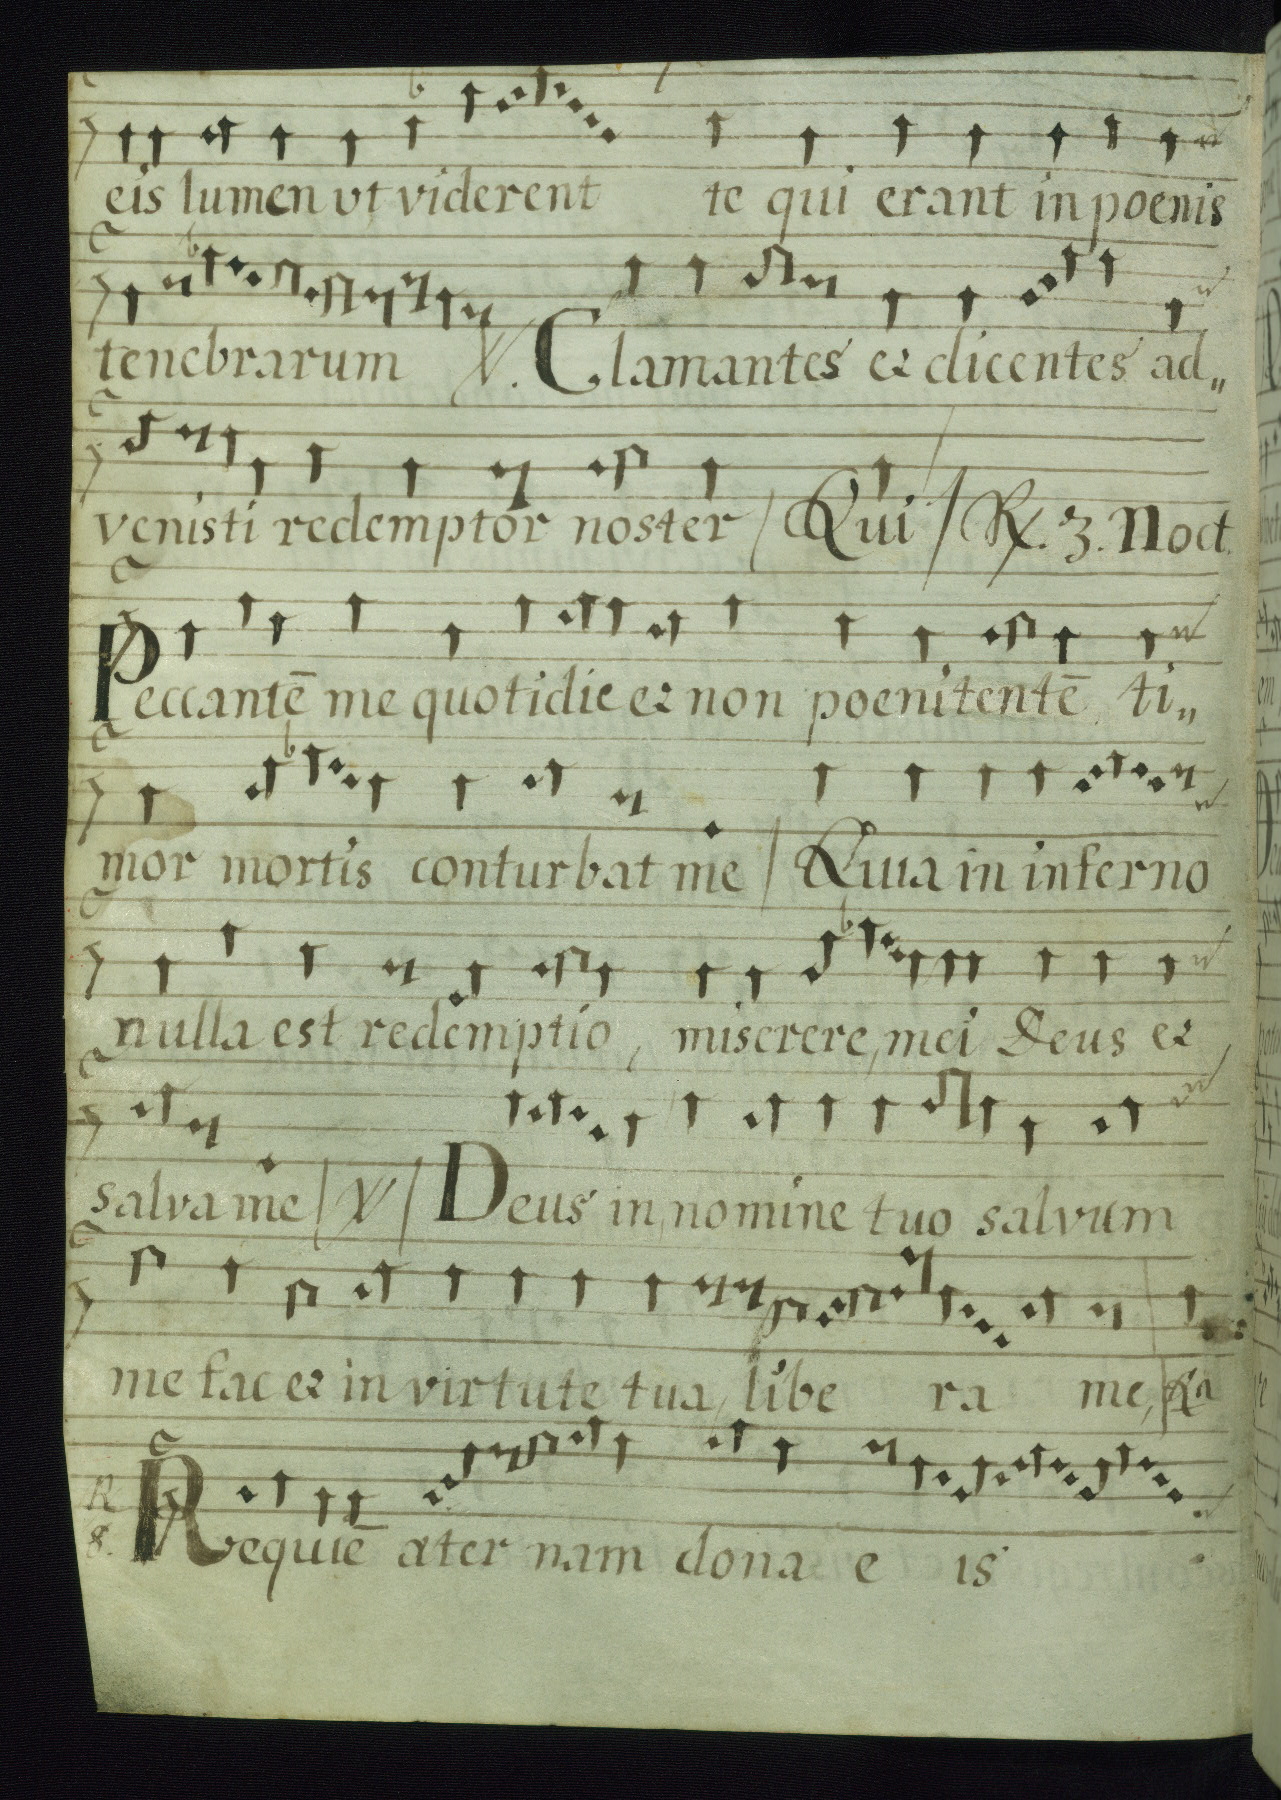 eis lumen vt viderent te qui erant in poenis
tenebrarum V. Clamantes et dicentes ad„
venisti redemptor noster / Qui / R. 3. Noct.
Peccantē me quotidie et non poenitentē, ti„
mor mortis conturbat me / Quia in inferno
nulla est redemptio, miserere, mei Deus et
salva me / V / Deus in, nomine tuo salvum
me fac et in virtute tua, libe ra me,
R
8. Requiē æter nam dona e is